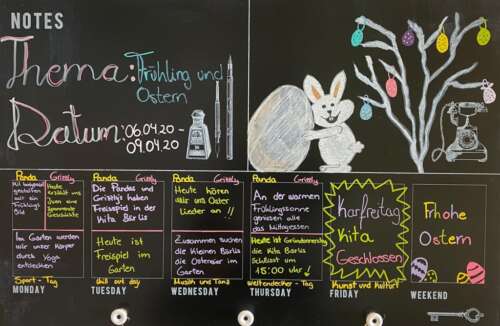 NOTES
Thema: Frühling und
Ostern
Datum: 06.04.20 -
09.04.20
Panda Grizzly
Heute
ein
Frühlings
Bild
eine
spannende
Geschichte
Im Garten werden
wir unser Körper
durch Yoga
entdecken
Sport - Tag
MONDAY
Panda Grizzly
Die Pandas und
Grizzlys haben
Freispiel in der
Kita Bärlis
Heute ist
Freispiel im
Garten
Chill out day
TUESDAY
Panda Grizzly
Heute hören
wir uns Oster
Lieder an !!
Zusammen suchen
die kleinen Bärlis
die Ostereier im
Garten
Musik und Tanz
WEDNESDAY
Panda Grizzly
An der warmen
Frühlingssonne
geniesen alle
das Mittagessen
Heute ist Gründonnerstag
die Kita Bärlis
schliesst um
15:00 uhr !
Weltendecker - Tag
THURSDAY
Karfreitag
Kita
Geschlossen
Kunst und Kultur
FRIDAY
Frhohe
Ostern
WEEKEND